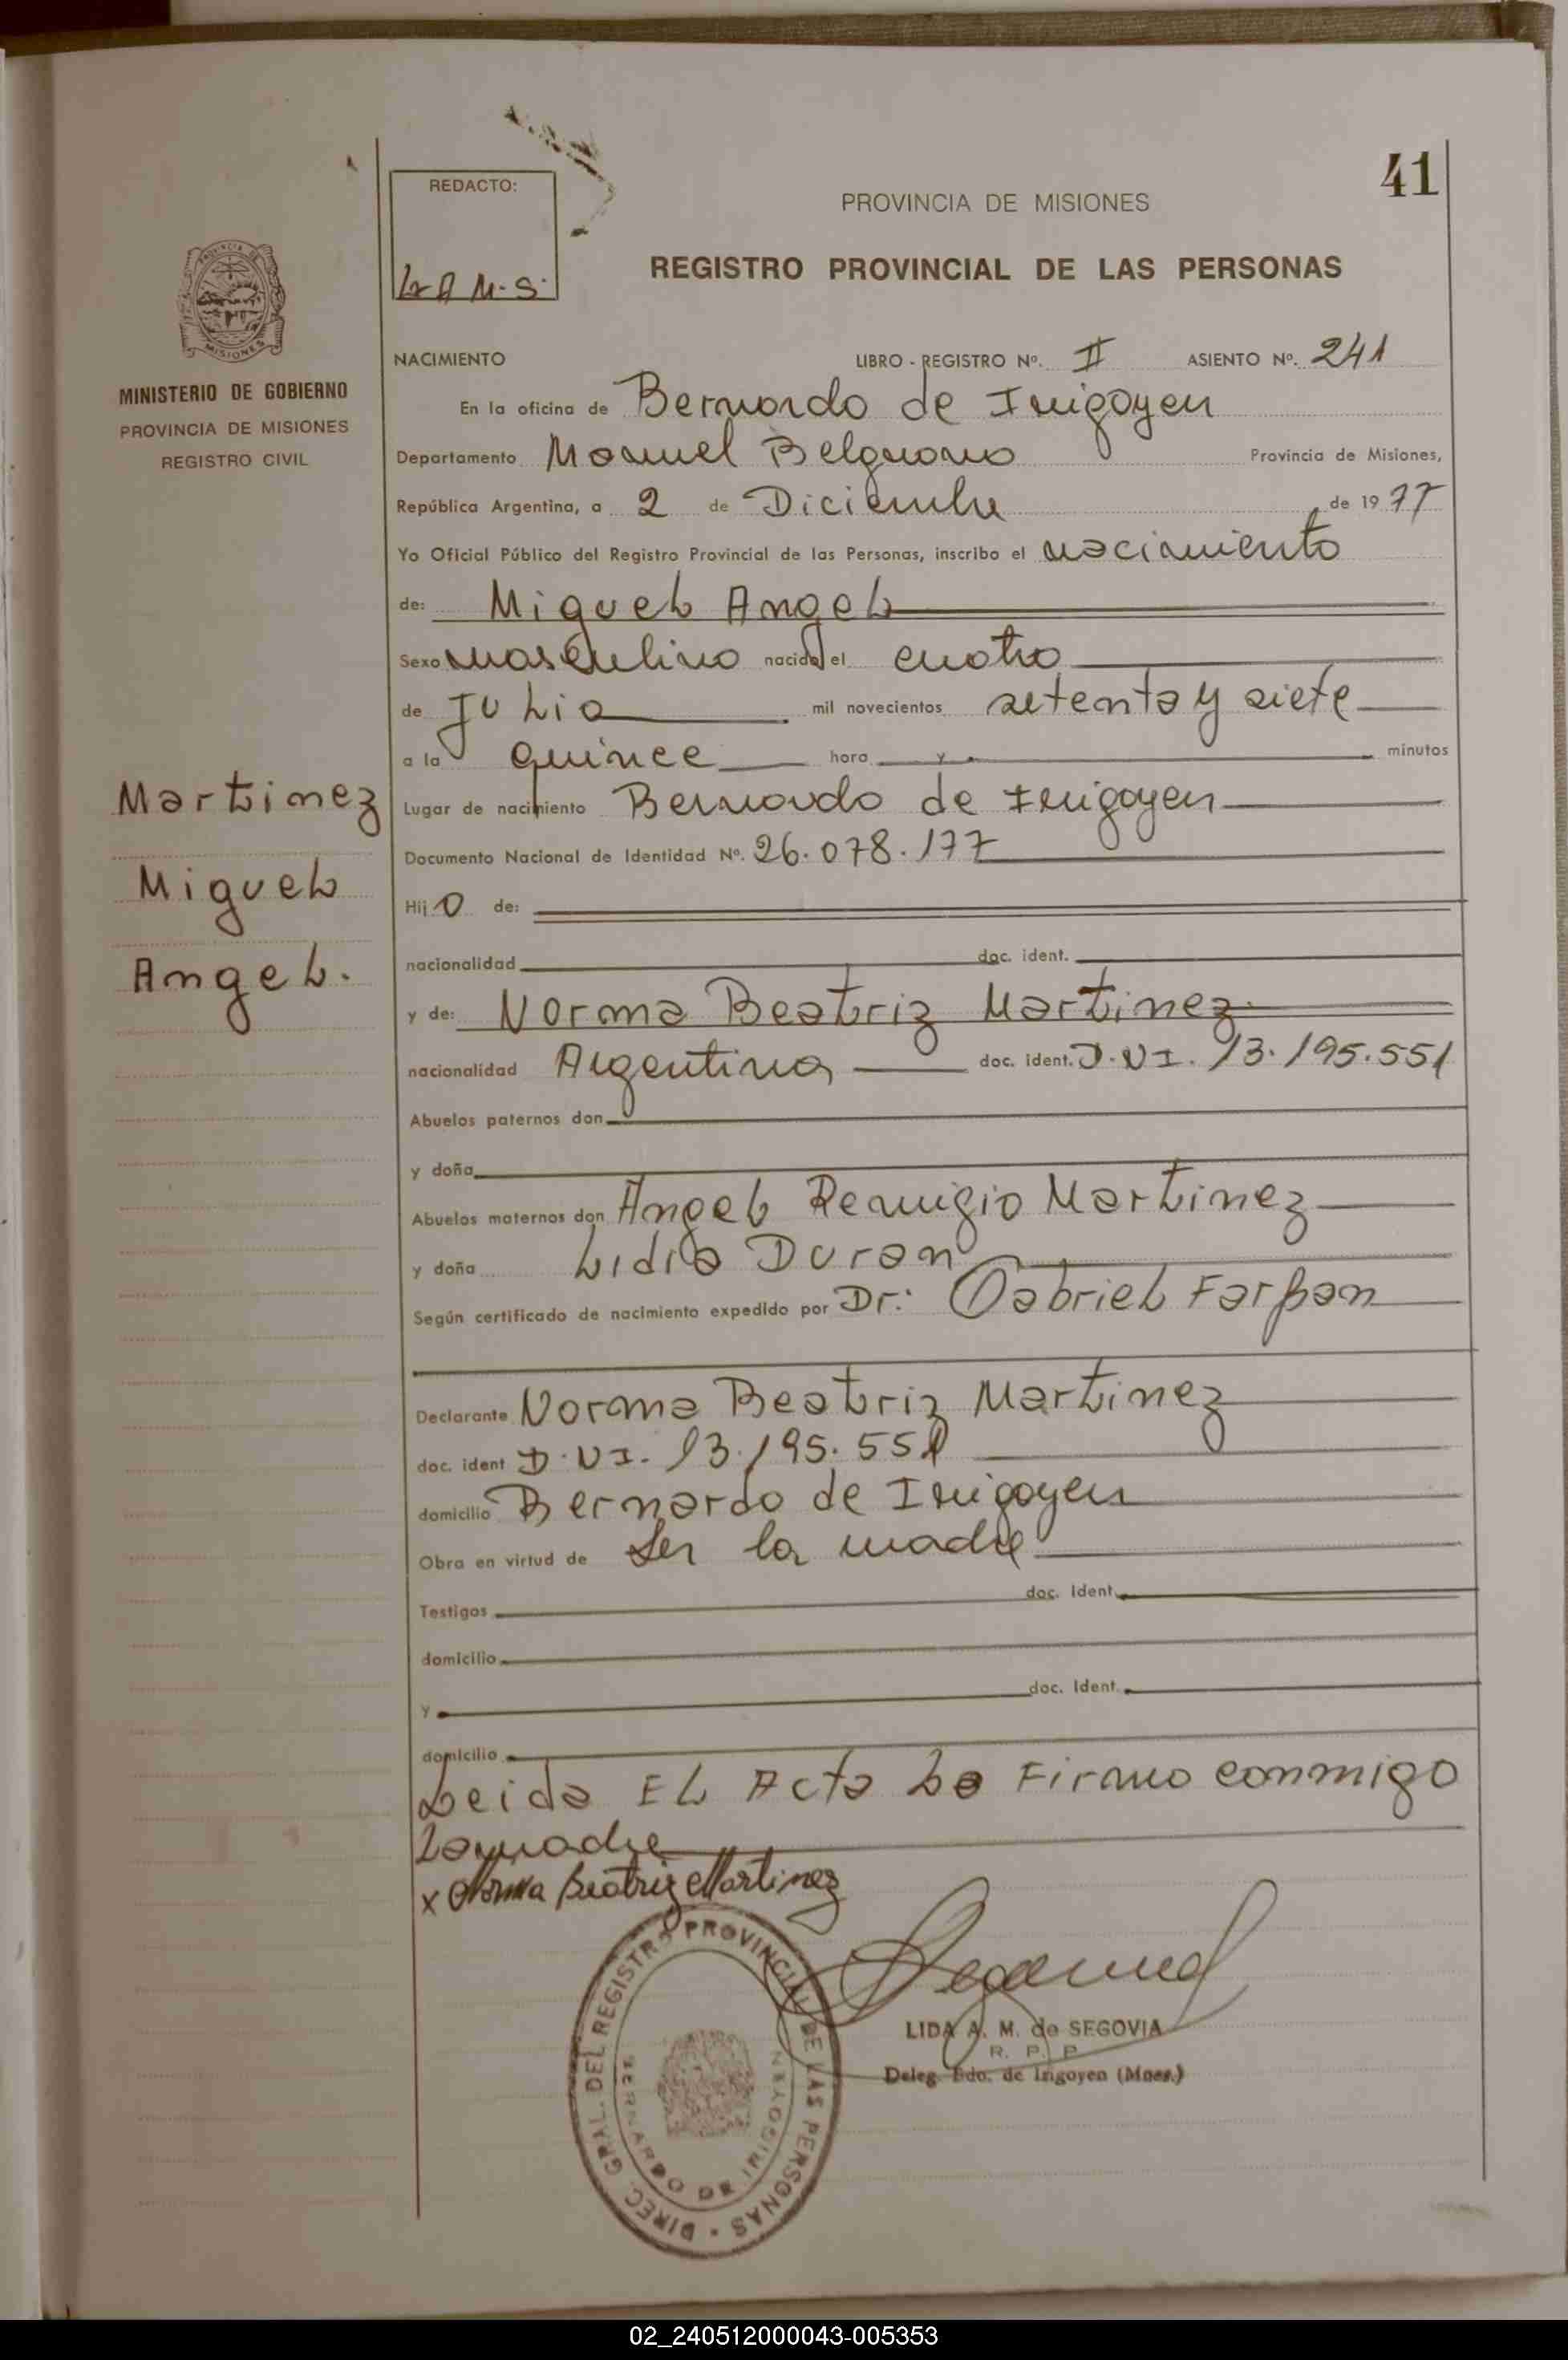 41
REDACTO:
L A M. S.
PROVINCIA DE MISIONES
REGISTRO PROVINCIAL DE LAS PERSONAS
PROVINCIA DE MISIONES
MINISTERIO DE GOBIERNO
PROVINCIA DE MISIONES
REGISTRO CIVIL
NACIMIENTO LIBRO - REGISTRO Nº. II ASIENTO Nº. 241
En la oficina de Bernardo de Irigoyen
Departamento Manuel Belgrano Provincia de Misiones,
República Argentina, a 2 de Diciembre de 1977
Yo Oficial Público del Registro Provincial de las Personas, inscribo el nacimiento
de: Miguel Angel
Sexo masculino nacido el cuatro
de Julio mil novecientos setenta y siete
a la quince hora y minutos
Martinez
Miguel
Angel.
Lugar de nacimiento Bernardo de Irigoyen
Documento Nacional de Identidad Nº. 26.078.177
Hij o de:
nacionalidad doc. ident.
y de: Norma Beatriz Martinez
nacionalidad Argentina doc. ident. D.N.I. 13.195.551
Abuelos paternos don
y doña
Abuelos maternos don Angel Remigio Martinez
y doña Lidia Duran
Según certificado de nacimiento expedido por Dr: Gabriel Farfan
Declarante Norma Beatriz Martinez
doc. ident D.N.I. 13.195.551
domicilio Bernardo de Irigoyen
Obra en virtud de ser la madre
Testigos doc. Ident.
domicilio
y doc. Ident.
domicilio
Leida El Acta La Firmo conmigo
La madre
x Norma Beatriz Martinez
DIREC. GRAL. DEL REGISTRO PROVINCIAL DE LAS PERSONAS
BERNARDO DE IRIGOYEN
LIDA A. M. de SEGOVIA
R. P. P
Deleg. Bdo. de Irigoyen (Mnes.)
02_240512000043-005353